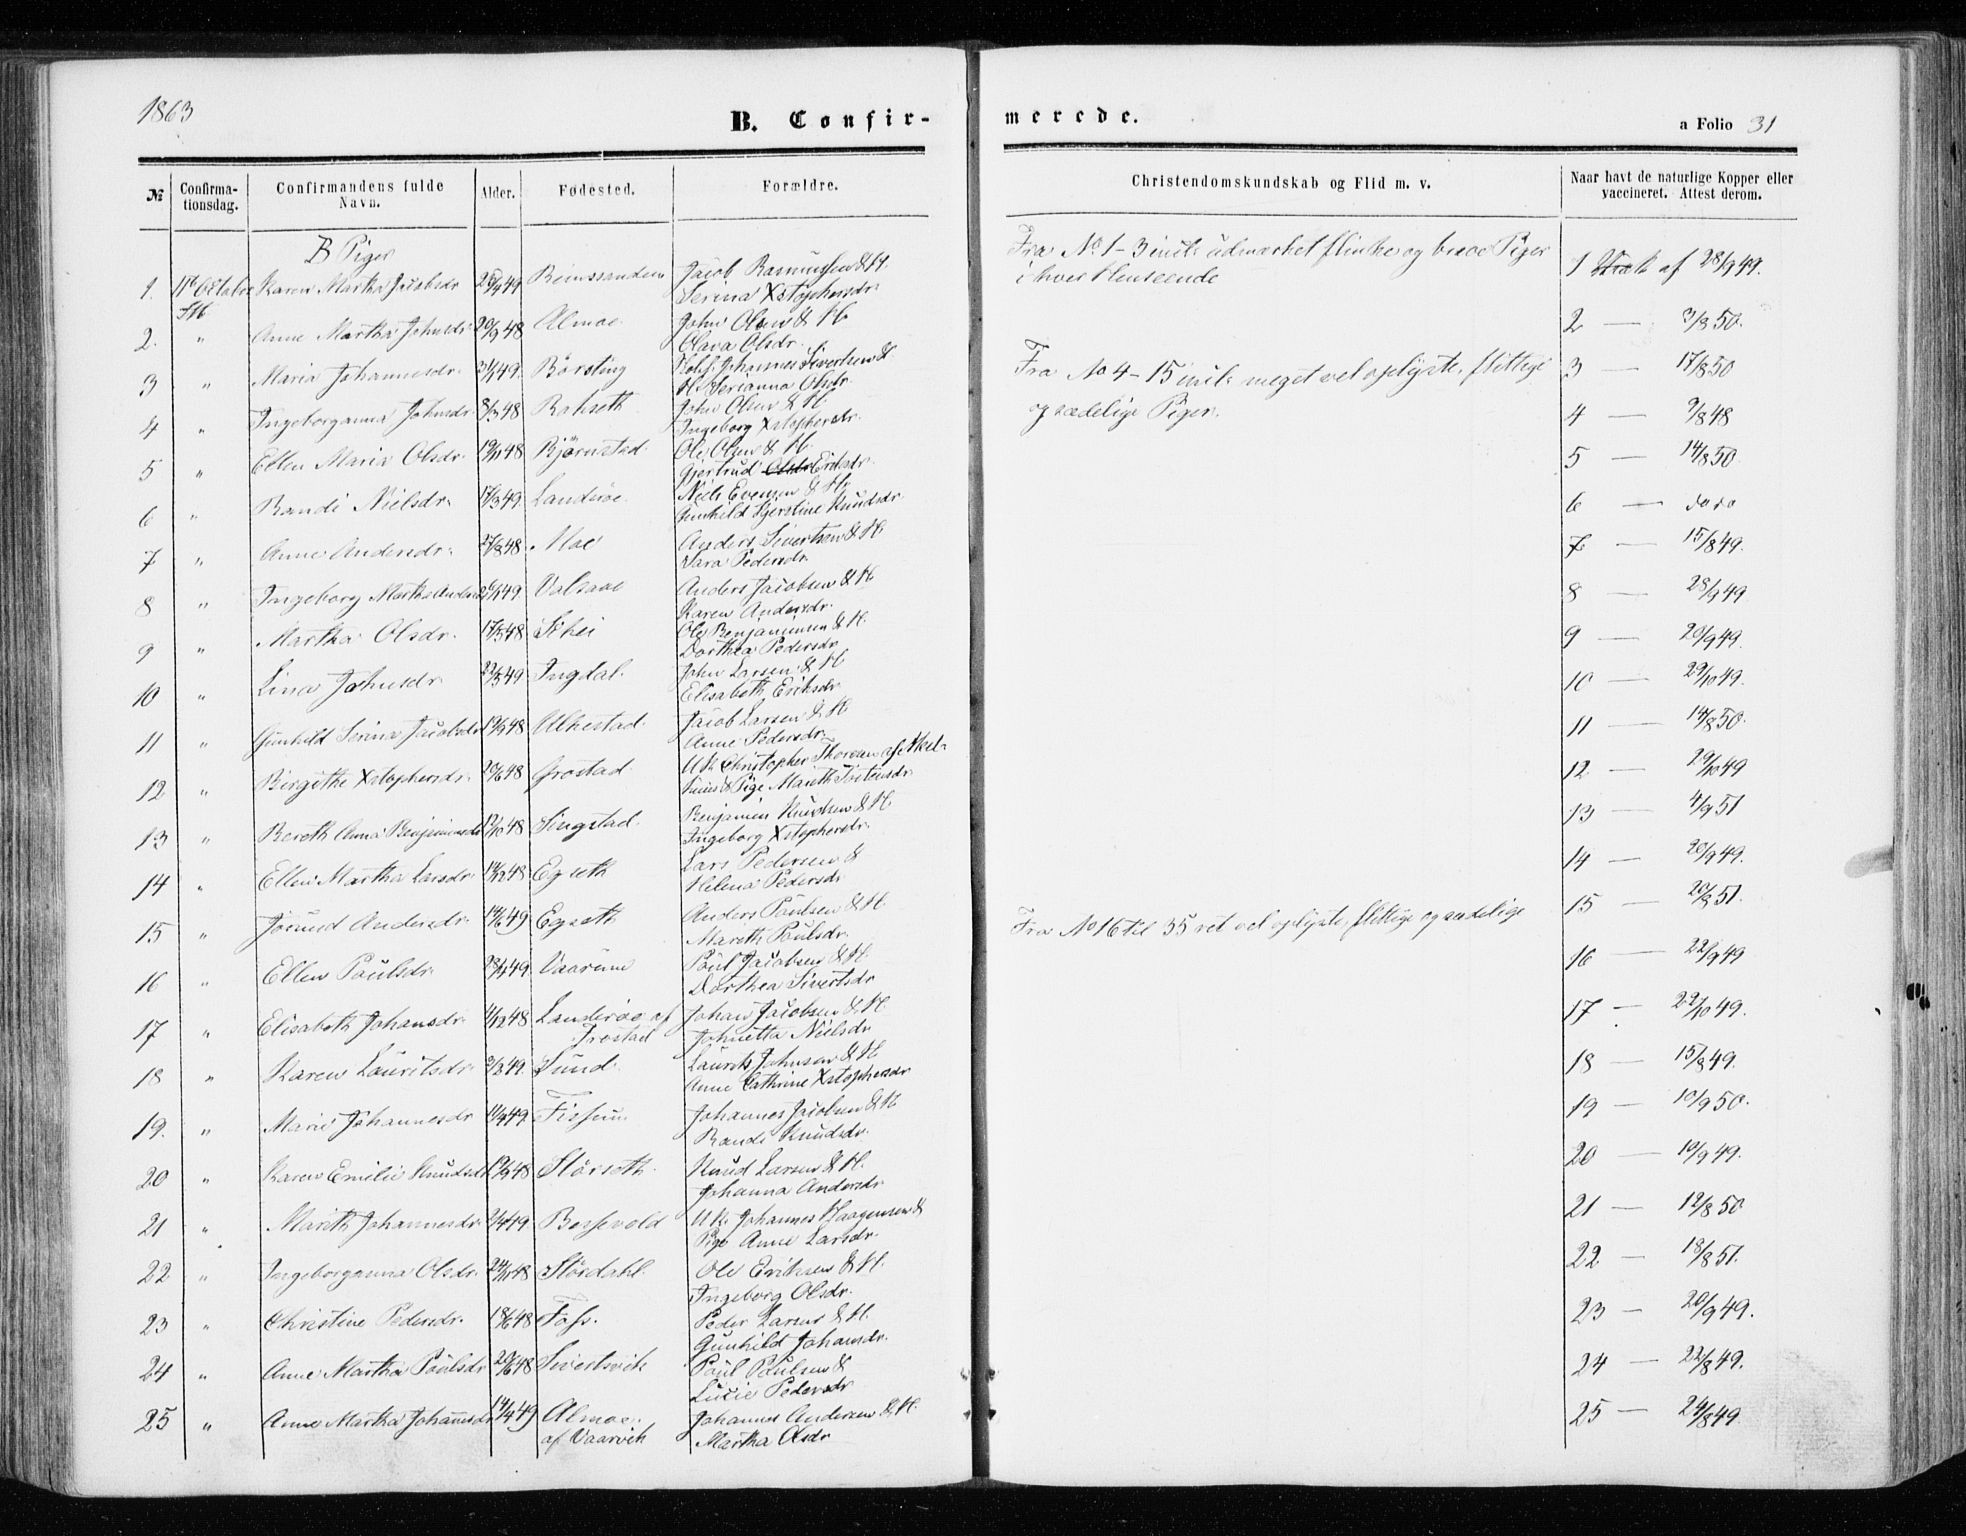 1863
B. Confir-
merede.
a Folio 31
№
Confirma-
tionsdag.
Confirmandens fulde
Navn.
Alder.
Fødested.
Forældre.
Christendomskundskab og Flid m. v.
Naar havt de naturlige Kopper eller
vaccineret. Attest derom.
B Piger
1. 11te October Karen Martha Jacobsdr 49 Reinssanden Jacob Rasmussen & H.
Serina Xstophersdr.
2. " Anne Martha Johnsdr 20/9 48 Almoe John Olsen & H.
Olava Olsdr.
3 " Maria Johannesdr. 49. Børsting Johannes Sivertsen &
H. Serianna Olsdr.
4 " Ingeborganna Johnsdr. 8/3 48 Rokseth John Olsen & H
Ingeborg Xstophersdr.
5 " Ellen Maria Olsdr. 19/11 48 Bjørnstad. Ole Olsen & H.
Gjertrud Olsdr Eriksdr.
6 " Randi Nielsdr. 17/3 49. Landrøe. Niels Evensen & H.
Gunhild Kjerstine Knudsdr.
7 " Anne Andersdr. 27/8 48 Moe Anders Sivertsen & H.
Sara Pedersdr.
8 " Ingeborg Martha Anders 49 Valsaae Anders Jacobsen & H
Karen Andersdr.
9 " Martha Olsdr. 17/5 48 Skei Ole Benjaminsen & H.
Dorthea Pedersdr.
10 " Lina Johnsdr 49 Ingdal. John Larsen & H
Elisabeth Eriksdr.
11 " Gunhild Serina Jacobsdr 48 Ulkestad. Jacob Larsen & H.
Anne Pedersdr.
12 " Birgithe Xstophersdr. 20/6 48 Grostad. U.K. Christopher Thoresen af Mel-
& Pige Mareth Tostensdr.
13 " Bereth Anna Benjaminsdr 12/10 48 Singstad. Benjamin Knudsen & H.
Ingeborg Xstophersdr.
14 " Ellen Martha Larsdr. 14/12 48 Egseth Lars Pedersen &
Helena Pedersdr
15 " Jørund Andersdr. 14/6 49 Egseth Anders Paulsen & H.
Mareth Paulsdr.
16 " Ellen Paulsdr. 49. Vaarum Poul Jacobsen & H.
Dorthea Sivertsdr
17 " Elisabeth Johansdr. 11/12 48 Landrøe af
Trostad Johan Jacobsen & H.
Johnetta Nielsdr.
18 " Karen Lauritsdr. 49. Sund. Laurits Johnsen & H
Anne Cathrine Xstophersdr
19. " Marie Johannesdr 49. Fissum. Johannes Jacobsen & H
Randi Knudsdr.
20 " Karen Emilie Knudsdr 19/9 48 Størseth. Knud Larsen & H.
Johanna Andersdr.
21 " Mareth Johannesdr. 2/4 49. Bersvold U.K. Johannes Haagensen &
Pige Anne Larsdr.
22 " Ingeborganna Olsdr. 24/11 48 Størdahl. Ole Eriksen & H.
Ingeborg Olsdr.
23 " Christine Pedersdr. 18/6 48 Foss. Peder Larsen & H.
Gunhild Johansdr.
24 " Anne Martha Paulsdr 20/6 48 Sivertsvik Paul Paulsen &
Lucie Pedersdr
25 " Anne Martha Johannesdr 14/4 49 Almoe.
af Vaarvik Johannes Andersen & H.
Martha Olsdr
Fra No 1-3 incl. udmærket flinke og brave Piger
i hver Henseende
Fra No 4-15 incl. meget vel oplyste, flittige
og sædelige Piger.
Fra No 16 til 35 ret vel oplyste, flittige og sædelige
1 af 28/9 49.
2 — 3/8 50.
3 — 17/8 50
4 — 9/8 48
5 — 14/8 50.
6 — do do
7 — 15/8 49.
8 — 28/9 49
9 — 20/9 49.
10 — 29/10 49.
11 — 14/8 50.
12 — 29/10 49
13 — 4/9 51
14 — 20/9 49.
15 — 20/8 51.
16 — 22/9 49
17 — 29/10 49.
18 — 15/8 49.
19 — 10/9 50.
20 — 10/9 49.
21 — 12/8 50
22 — 18/8 51.
23 — 20/9 49.
24 — 22/8 49.
25 — 24/8 49.